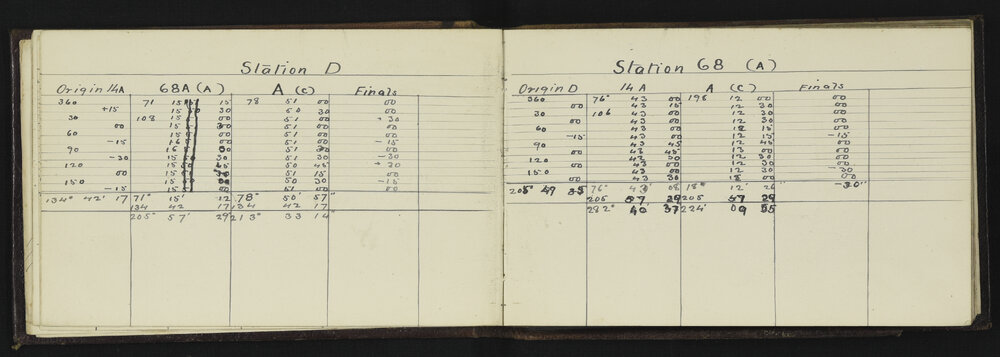 Station D
Origin 14A 68A (A) A (C) Finals
360 71 15 15 78 51 00 00
+15 15 30 50 30 00
30 108 15 00 51 00 +30
00 15 51 00 00
60 15 00 51 00 00
-15 16 00 51 00 -15
90 16 51 00
-30 15 30 51 30 -30
120 15 45 50 45 +30
00 15 51 15 00
150 15 50 30 -15
-15 15 00 51 00 00
134° 42' 17 71° 15' 12 78° 50' 57"
134 42 17 134 42 17
205° 57' 29 213° 33 14"
Station 68 (A)
Origin D 14 A A (C) Finals
360 76° 43 00 198 12 00 00
00 43 15 12 30 00
30 106 43 00 12 30 00
00 43 00 12 30 00
60 43 00 12 15 00
-15 43 00 12 15 -15
90 43 45 12 45 00
00 43 45 13 00 00
120 42 30 12 30 00
00 43 00 12 30 00
150 43 00 12 30 -30
00 43 30 00 00
205° 76° 43' 08 18° 12' 26" -30"
205 57 29 205 57 29
282° 40 37 224' 09 55